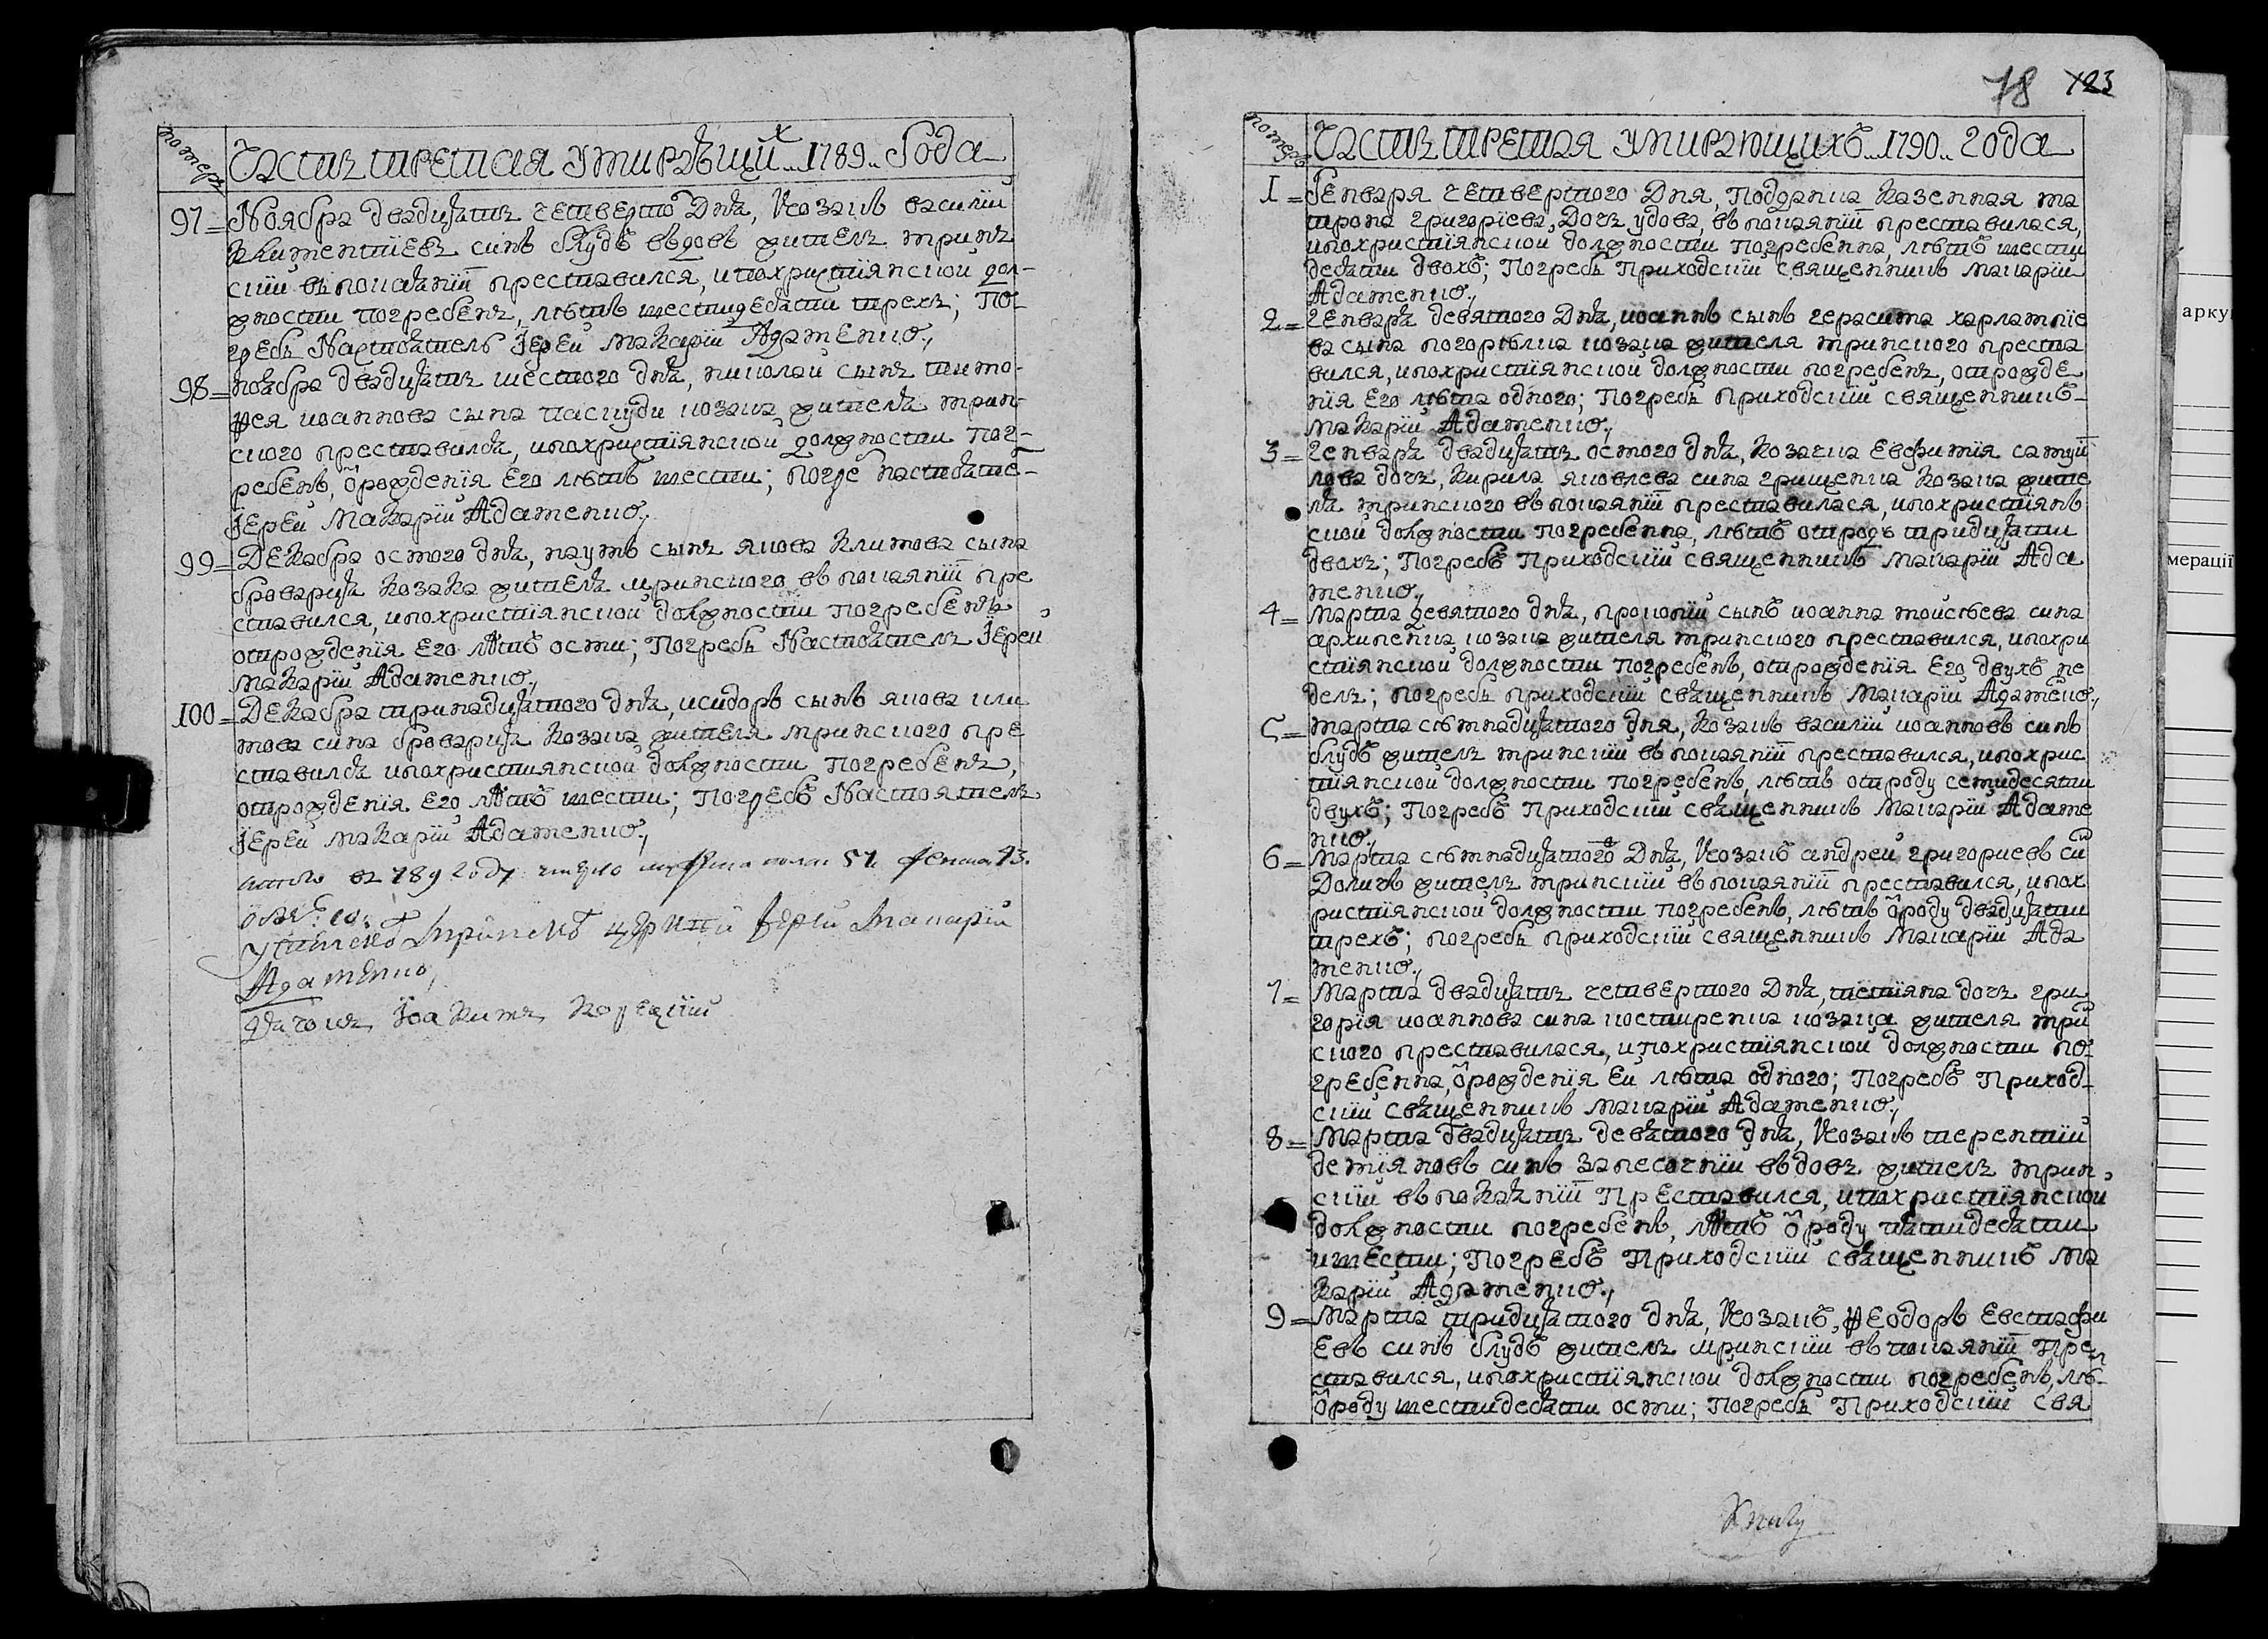 номеръ
Часть третая умиравщих 1789 Года
97 = Ноября двадцять четверто дня, Козакъ василий
Климентиевъ синъ блудъ вдовъ житель мринъ
ский въ покаянїи преставился, и похристїянской дол-
жности погребенъ, лѣтъ шестидесяти трехъ; По-
гребъ Настоятель Їерей Макарїй Адаменко.,
98 = ноября двадцять шестого дня, николай сынъ тимо-
ѳея иоаннова сына паскуди козака жителя мрин-
ского преставился, и похристїянской должности пог-
ребенъ, ѿ рождения Его лѣтъ шести; погре настояте-
Їерей Макарїй Адаменко.,
99 = ДЕКабра осмого дня, наумъ сынъ якова климова сына
броварця Козака жителя мринского въ покаянїи пре
ставился, и похристїянской должности погребенъ,
отрождения Его лѣтъ осми; Погребъ Настоятель Їерей
Макарїй Адаменко.,
100 = ДЕКабра тринадцятого дня, исидоръ сынъ якова кли
мова сина броварця Козака жителя мринского пре
ставился и похристиянской должности погребенъ,
отрождения Его лѣтъ шести; Погребъ Настоятель
Їерей Макарїй Адаменко.,
въ 789 году число мужеска полаа 51 женска 43.
Успенско Мринско церкви Їерей Макарїй
Адаменко,
Дячокъ Їоакимъ
78 123
номеръ
Часть третая умирающихъ 1790 года
1 = Генваря четвертого Дня, Подданка казенная ма
трона григорїева, Дочь удова, въ покаянїи преставилася,
и похристїянской должности погребенна, лѣтъ шести
десяти двохъ; Погребъ Приходский священникъ Макарїй
Адаменко.,
2 = Генваря девятого Дня, иоаннъ сынъ герасима харлампїе
ва сына погорѣлца козака жителя мринского преста
вился, и похристїянской должности погребенъ, отрожде
нїя Его лѣта одного; Погребъ Приходский священникъ
Макарїй Адаменко.,
3 = Генваря двадцять осмого дня, козачка Евфимїя самуй
лова дочь, Кирила яковлева сина грищенка Козака жите
ля мринского въ покаянїи преставилася, и похристїянъ
ской должности погребенна, лѣтъ отродъ тридцяти
двохъ; Погребъ Приходский священникъ Макарїй Ада
менко.,
4 = Марта девятого дня, прокопїй сынъ иоанна моисѣева сина
архипенка козака жителя мринского преставился, и похри
стїянской должности погребенъ, отрождения Его двухъ не
дель; погребъ приходский священникъ Макарїй Адаменко.,
5 = марта сѣмнадцятого дня, Козакъ василий иоанновъ синъ
блудъ житель мринский въ покаянїи преставился, и похрис
тїянской должности погребенъ, лѣтъ отроду семидесяти
двухъ; Погребъ Приходский священникъ Макарїй Адаме
нко.,
6 = Марта сѣмнадцятого Дня, Козакъ андрей григориевъ си
Доличъ житель мринский въ покаянїи преставился, и пох
ристїянской должности погребенъ, лѣтъ ѿроду двадцяти
трехъ; погребъ приходский священникъ Макарїй Ада
менко.,
7 = Марта двадцять четвертого Дня, тетїяна дочь гри
горїя иоаннова сина костиренка козака жителя мри
ского преставилася, и похристїянской должности по-
гребенна, ѿрожденїя Ей лѣта одного; Погребъ Приход-
ский священникъ Макарїй Адаменко.,
8 = Марта двадцять девятого дня, Козакъ терентий
демїяновъ синъ запесочний вдовъ житель мрин,
ский въ покаянїи Преставился, и похристїянской
должности погребенъ, лѣтъ ѿроду пятидесяти
и шести; Погребъ Приходский священникъ Ма
карїй Адаменко.,
9 = Марта тридцятого дня, Козакъ, Ѳеодоръ Евстафи
Евъ синъ блудъ житель мринский въ покаянїи Пре
ставился, и похристїянской должности погребенъ, лѣ-
ѿроду шестидесяти осми; Погребъ Приходский свя
арку
мерації